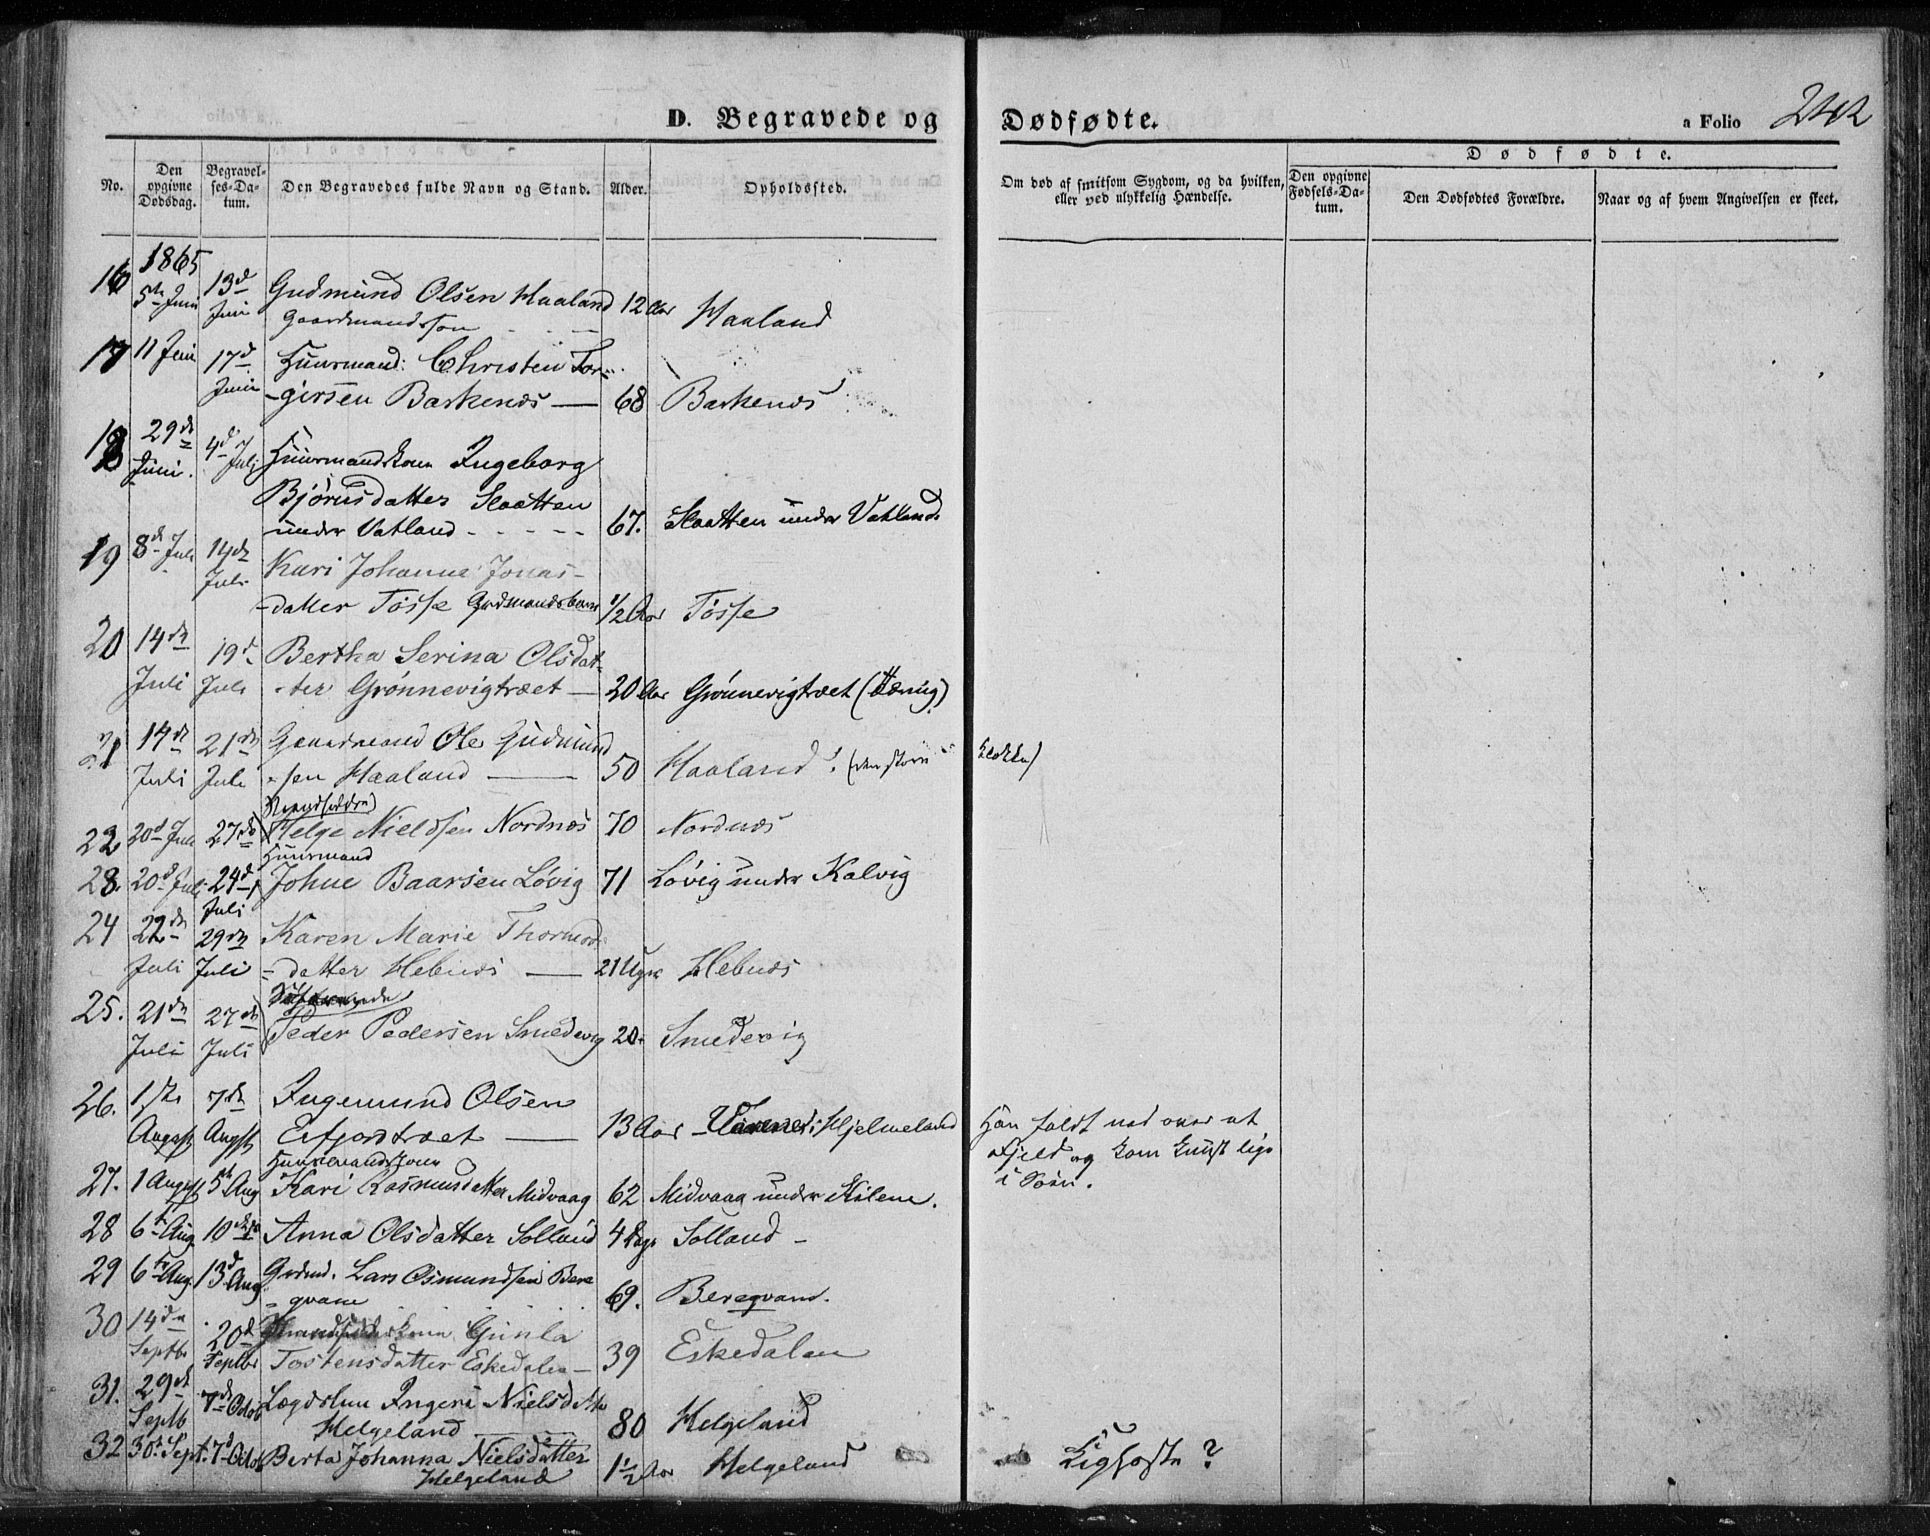 D. Begravede og Dødfødte.
a Folio 242
No.
Den opgivne Dødsdag.
Begravelses-Datum.
Den Begravedes fulde Navn og Stand.
Alder.
Opholdssted.
Om død af smitsom Sygdom, og da hvilken, eller ved ulykkelig Hændelse.
Dødfødte.
Den opgivne Fødsels-Datum.
Den Dødfødtes Forældre.
Naar og af hvem Angivelsen er skeet.
1865
16 5te Juni 13d Juni Gudmund Olsen Haaland 12 Aar Haaland
Gaardmandssøn
17 11 Juni 17d Juni Huusmand: Christen Tor-
-gersen Barkenæs — 68 Barkenæs
18 29de Juni. 4d July Huusmandskone Ingeborg
Bjørnsdatter Slaatten
under Vatland - - - - - 67. Slaatten under Vatland.
19 8de Juli 14de Juli Kari Johanne Jonas-
-datter Tøsse Grdmandsbarn 1/2 Aar Tøsse
20 14de Juli 19d Juli Bertha Serina Olsdat-
-ter Grønnevigtræet — 20 Aar Grønnevigtræet
21 14de Juli 21de Juli Gaardmand Ole Gudmund
-sen Haaland — 50 Haaland. (den store Klokke)
22 20d Juli 27de Helge Nielssen Nordnæs 70 Nordnæs
Huusmand
23. 20d Juli 24d Juli Johne Baarsen Løvig 71 Løvig under Kalvig
24 22de Juli 29de Juli Karen Marie Thormods
-datter Hebnæs — 21 Uger Hebnæs
25. 21de Juli 27de Juli Peder Pedersen Smedevig 20. Smedevig
26. 1ste Augst 7de Augst Ingemund Olsen
Erfjordtræet — 13 Aar i Hjelmeland Han faldt ned over et
Fjeld og kom knust lige
i Søen.
Huusmandskone
27. 1 August 5te Aug Kari Rasmusdatter Midvaag 62 Midvaag under Kilene.
28 6te Aug 10de Anna Olsdatter Solland 4 Dage Solland -
29 6te Aug. 13d Aug Grdmd. Lars Osmundsen Berg
-qvam 69. Bergqvam.
30 14de Septbr 20d Septbr Gunla
Tostensdatter Eskedalen — 39 Eskedalen
31. 29de Septb 7de Octob Lægdslem Ingeri Nielsdatter
Helgeland — 80 Helgeland
32 30te Sept. 7d Octob Berta Johanna Nielsdatter 1 1/2 Aar Helgeland Kighoste ?
Helgeland